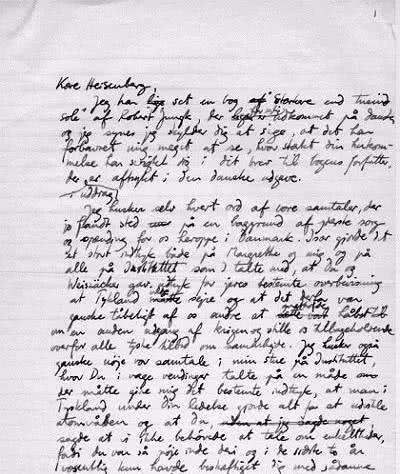 1
Kære Heisenberg,
Jeg har lige set en bog af "Stærkere end tusind
sole" af Robert Jungk, der er udkommet på dansk
og jeg synes jeg skylder dig at sige, at det har
forbavset mig meget at se, hvor stærkt din hukom-
melse har sviktet dig i dit brev til bogens forfatter,
der er aftrykt i den danske udgave.
i uddrag
Jeg husker selv hvert ord af vore samtaler, der
jo fandt sted på en baggrund af yderste sorg
og spænding for os heroppe i Danmark. Især gjorde det
et stort indtryk både på Margrethe og mig og på
alle på Instituttet som I talte med, at Du og
Weizsäcker gav udtryk for jeres bestemte overbevisning
at Tyskland måtte sejre og at det derfor var
ganske tåbeligt af os andre at håbet til
om en anden udgang af krigen og stille os tilbageholdende
overfor alle tyske tilbud om samarbejde. Jeg husker også
ganske nøje vor samtale i min stue på Instituttet,
hvor Du i vage vendinger talte på en måde som
der måtte give mig det bestemte indtryk, at man i
Tyskland under Din ledelse gjorde alt for at udvikle
atomvåben og at du,
sagde at vi ikke behøvede at tale om enkeltheder,
fordi du var så nøje inde deri og i de sidste to år
væsentlig kun havde beskæftiget dig med sådanne